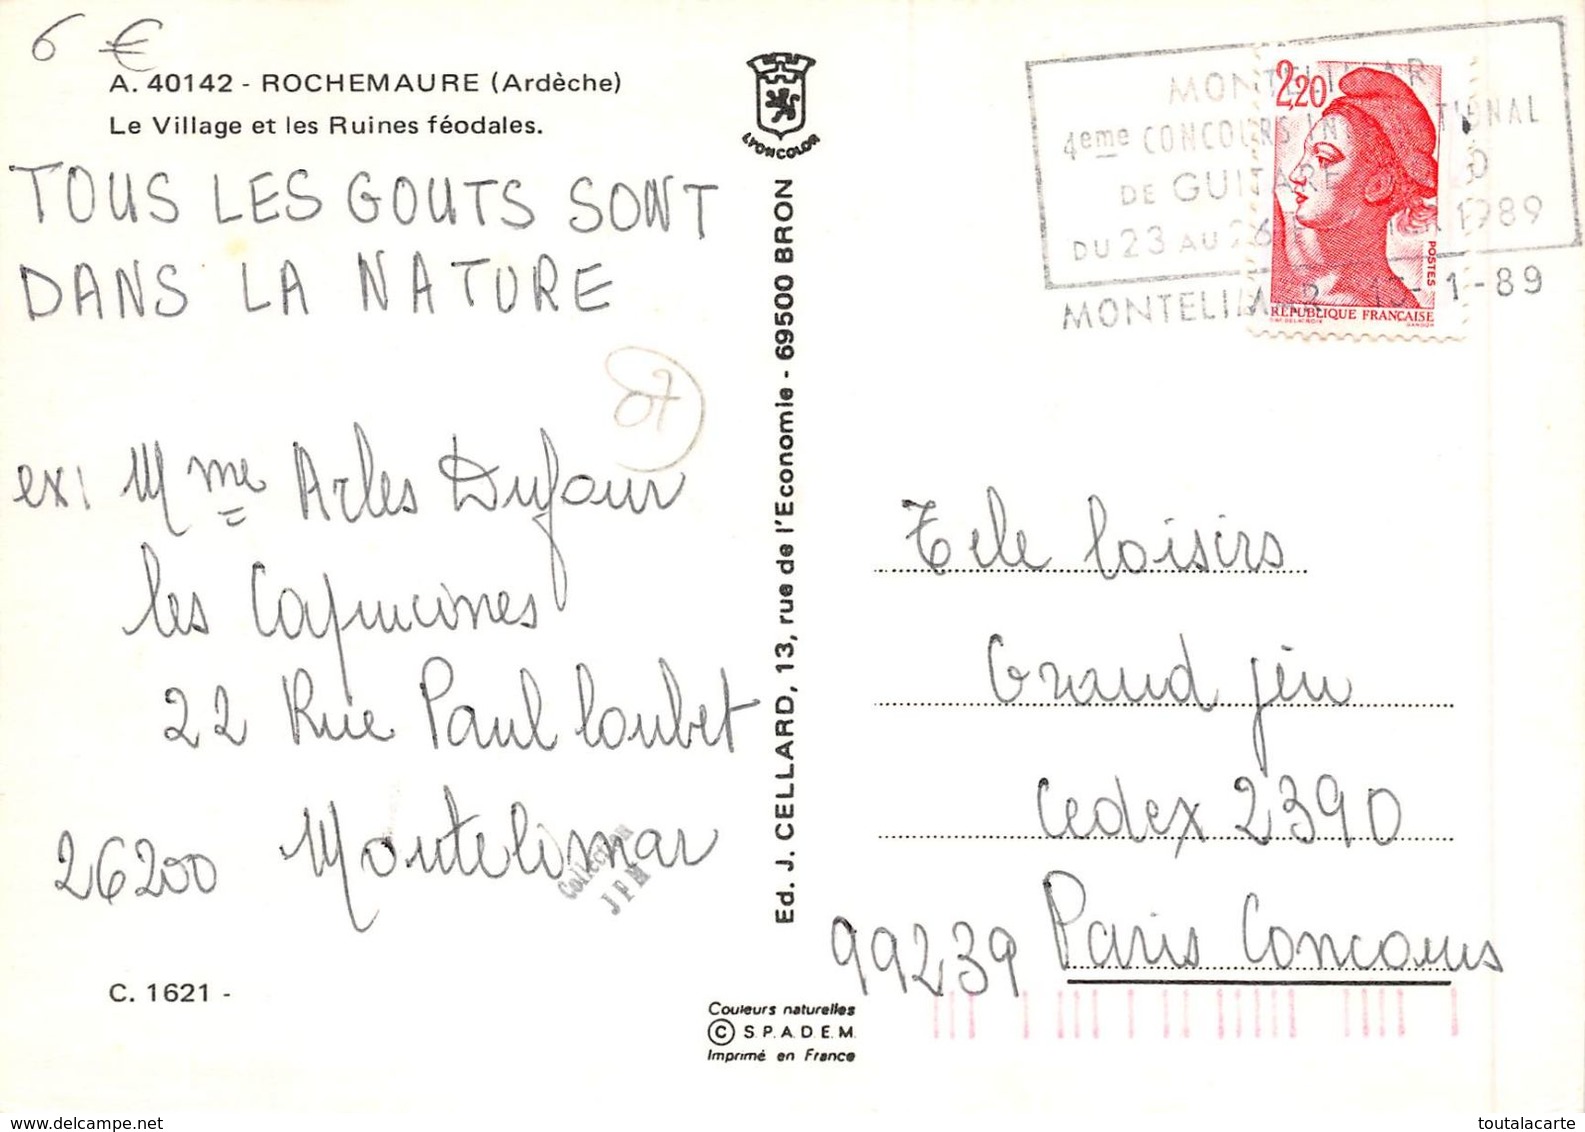 6 €
A. 40142 - ROCHEMAURE (Ardèche)
Le Village et les Ruines féodales.
TOUS LES GOUTS SONT
DANS LA NATURE
07
ex: Mme Arles Dufour
les Capucines
22 Rue Paul Loubet
26200 Montelimar
Collection
JPM
C. 1621 -
LYONCOLOR
Ed. J. CELLARD, 13, rue de l'Economie - 69500 BRON
Couleurs naturelles
© S.P.A.D.E.M.
Imprimé en France
MONTELIMAR
4eme CONCOURS INTERNATIONAL
DE GUITARE
DU 23 AU 26 1989
MONTELIMAR -1-89
2,20
POSTES
RÉPUBLIQUE FRANÇAISE
Tele Loisirs
Grand jeu
Cedex 2390
99239 Paris Concours
www.delcampe.net
toutalacarte